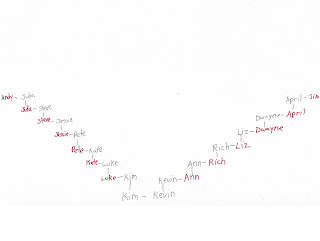 Andy – Julia
April – Jim
Julia – Steve
Dwayne – April
Steve – Jessie
Liz – Dwayne
Jessie – Pete
Pete – Kate
Rich – Liz
Kate – Luke
Ann – Rich
Luke – Kim
Kevin – Ann
Kim – Kevin